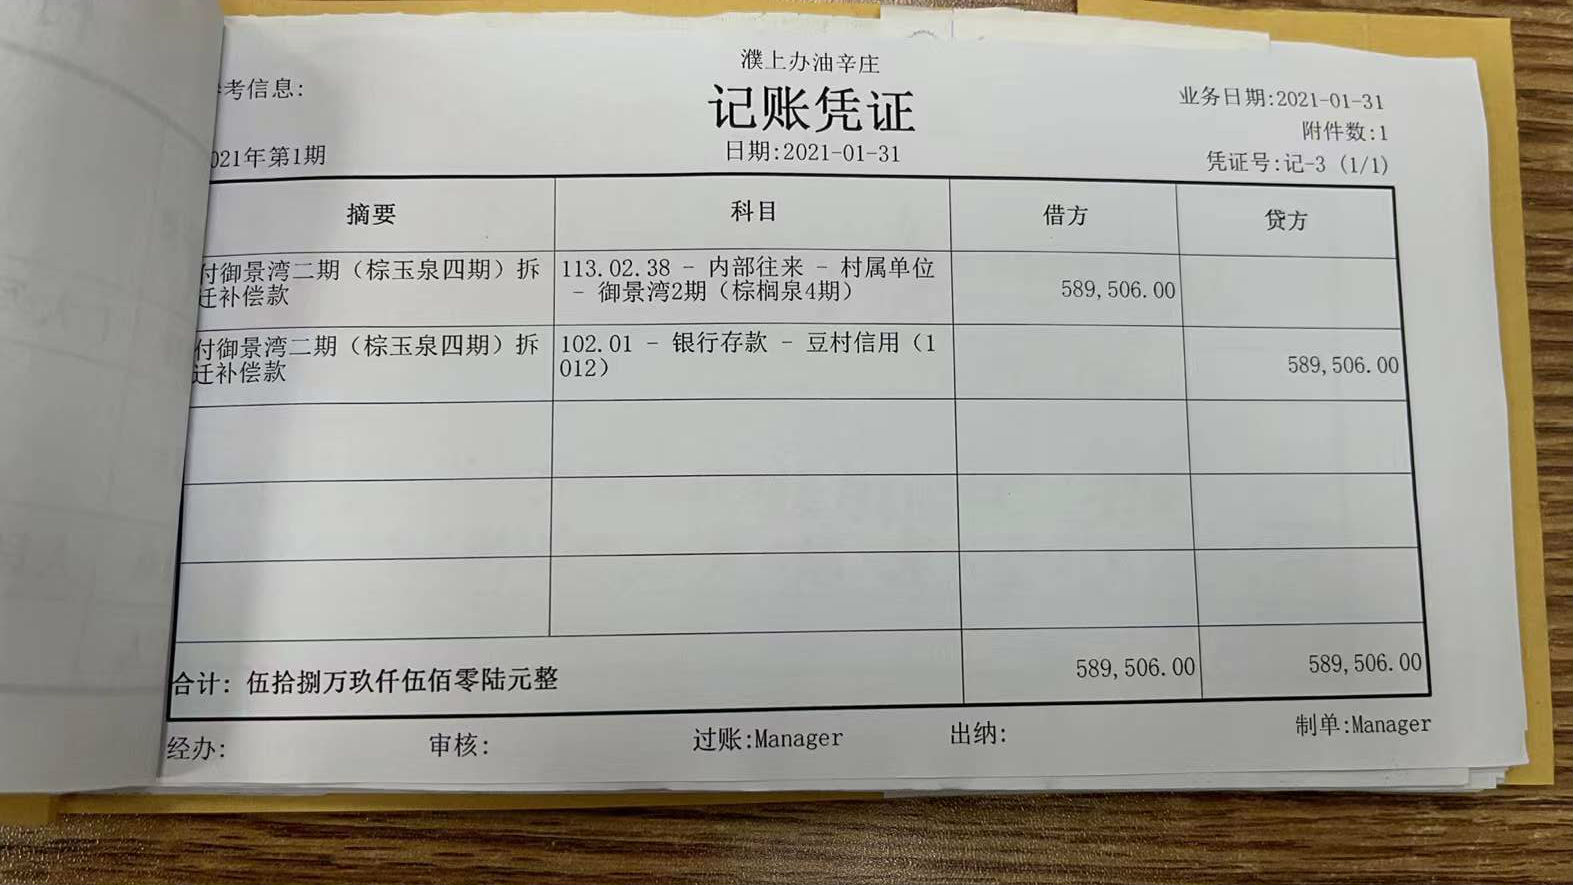 濮上办油辛庄
考信息:
记账凭证
业务日期:2021-01-31
附件数:1
021年第1期
日期:2021-01-31
凭证号:记-3 (1/1)
摘要 科目 借方 贷方
付御景湾二期（棕玉泉四期）拆
迁补偿款
113.02.38 - 内部往来 - 村属单位
- 御景湾2期（棕榈泉4期）
589,506.00
付御景湾二期（棕玉泉四期）拆
迁补偿款
102.01 - 银行存款 - 豆村信用（1
012）
589,506.00
合计: 伍拾捌万玖仟伍佰零陆元整 589,506.00 589,506.00
经办: 审核: 过账:Manager 出纳: 制单:Manager